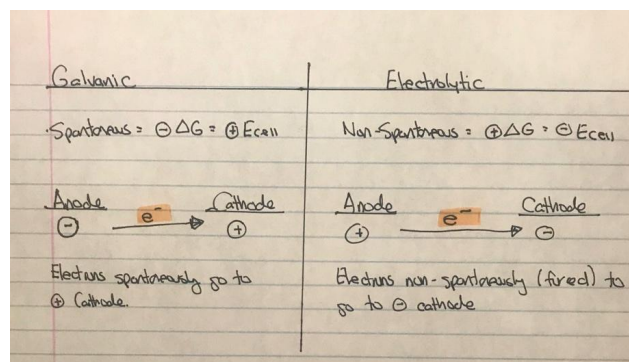 Galvanic
Spontaneous = ⊖ ΔG = ⊕ Ecell
Anode Cathode
e⁻
⊖ ⊕
Electrons spontaneously go to
⊕ Cathode.
Electrolytic
Non-Spontaneous = ⊕ ΔG = ⊖ Ecell
Anode Cathode
e⁻
⊕ ⊖
Electrons non-spontaneously (forced) to
go to ⊖ cathode